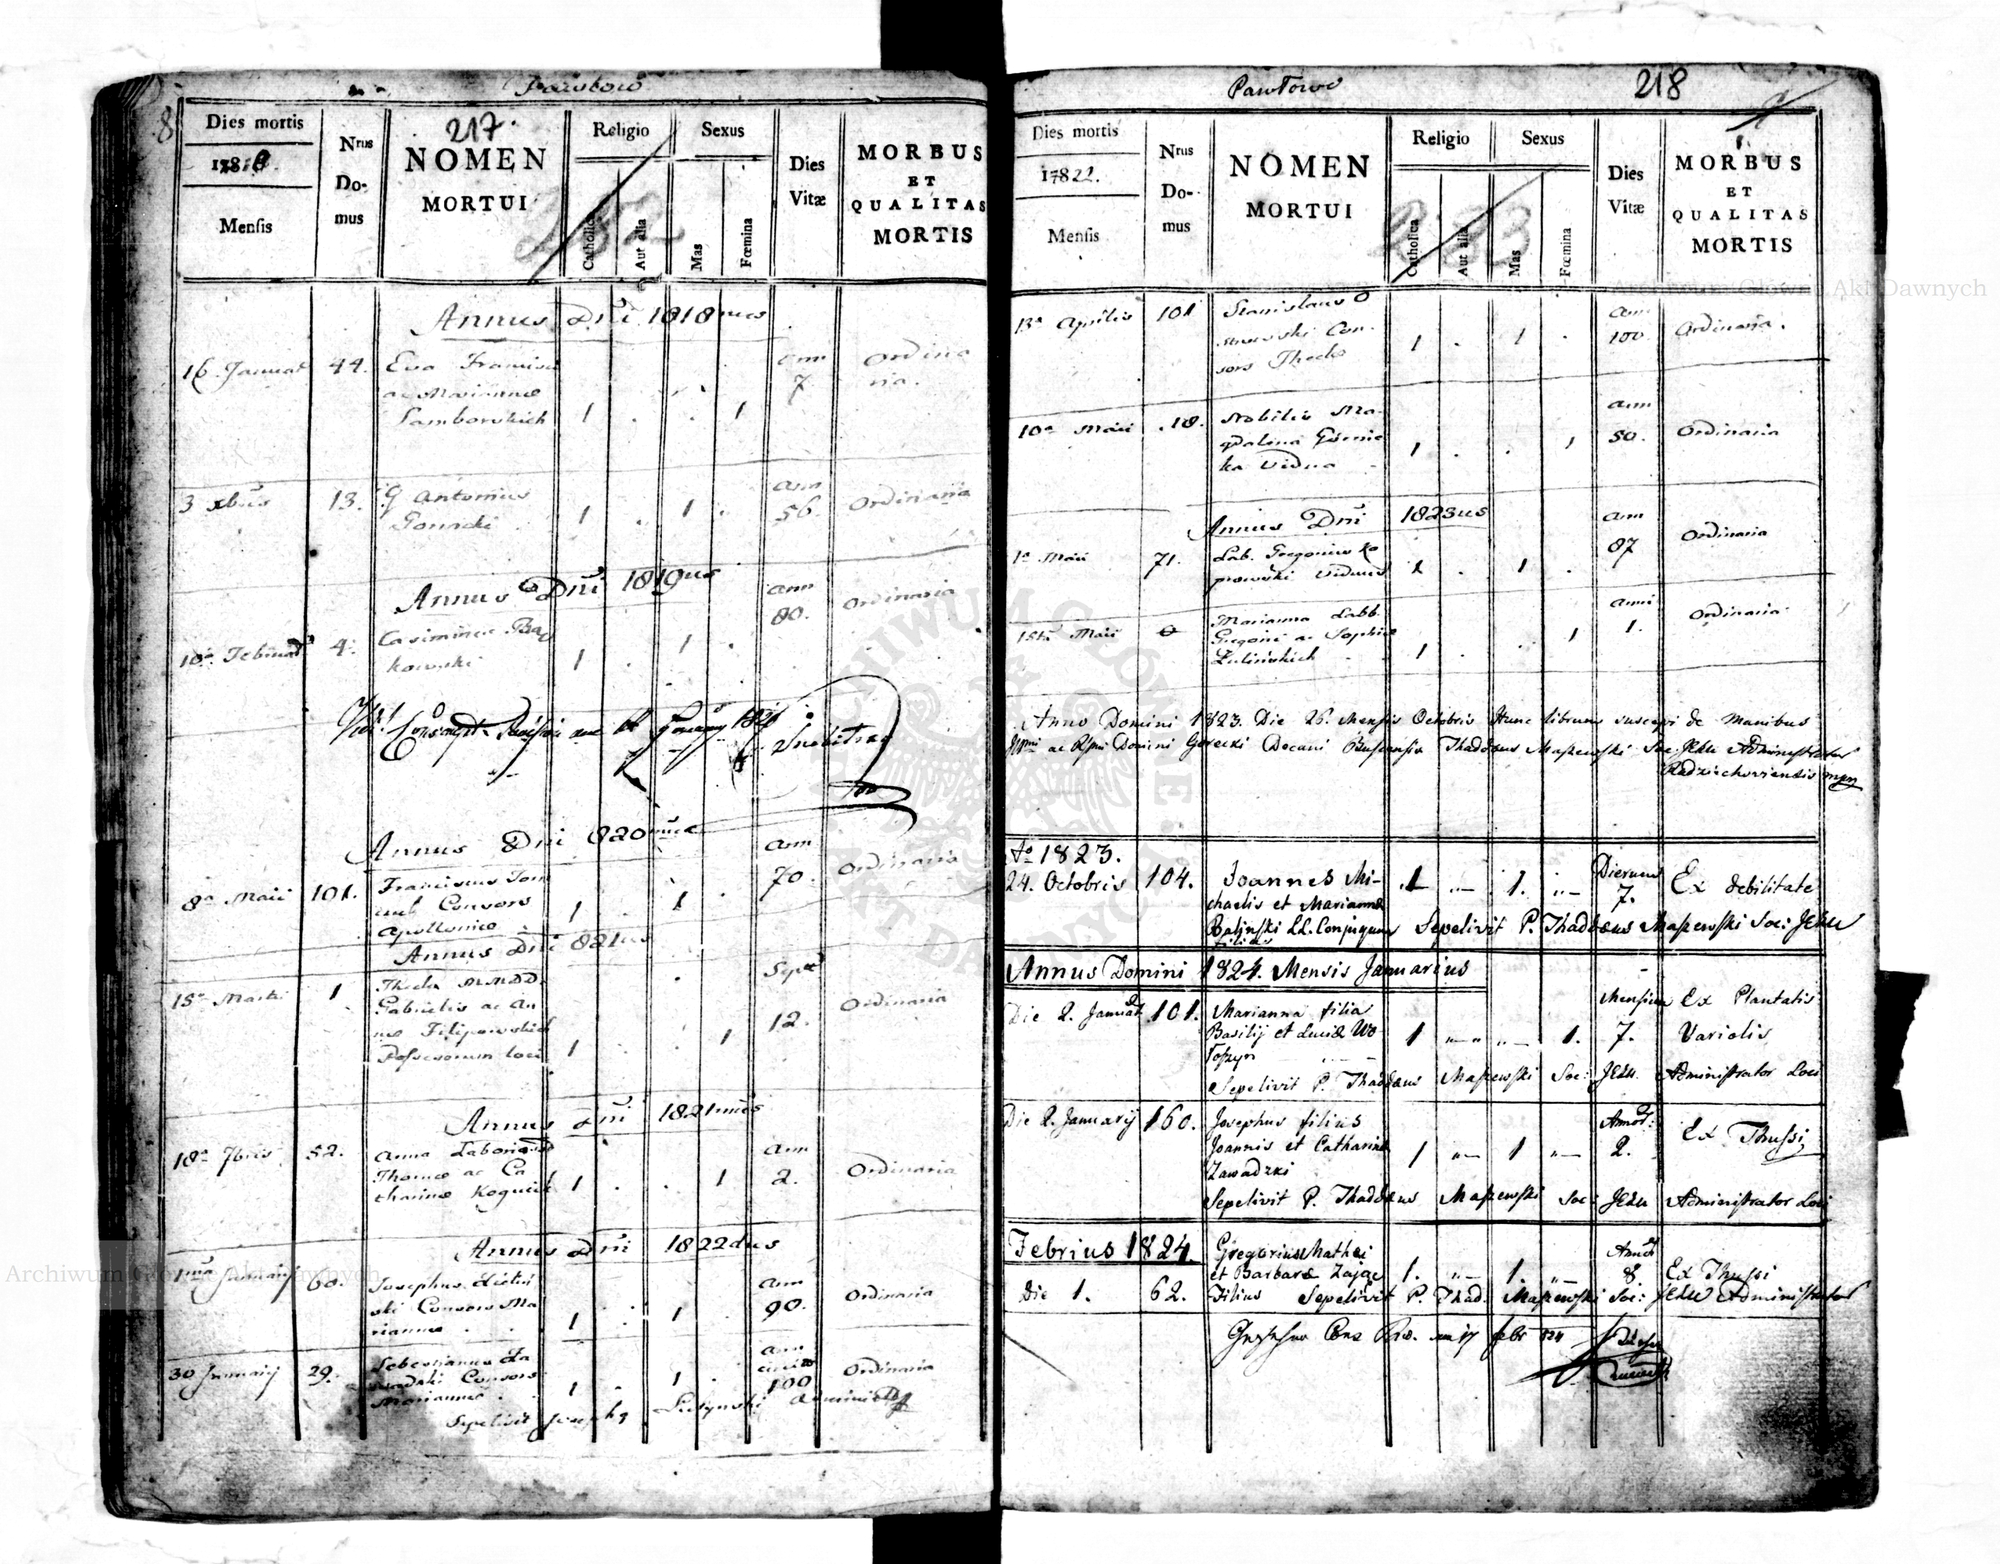 Pawłow
8
217.
Dies mortis
17818.
Mensis
Nrus
Do-
mus
NOMEN
MORTUI
Religio
Catholica
Aut alia
Sexus
Mas
Fœmina
Dies
Vitæ
MORBUS
ET
QUALITAS
MORTIS
232
Annus Dni 1818vus
16. Januar 44. Eva Francisci
ac Mariannæ
Samborskich 1 . . 1 ann 7. Ordina
ria.
3 Xbris 13. G Antonius
Gorucki 1 . 1 . ann 56. Ordinaria
Annus Dni 1819us
10a Februar 4. Casimirus Bą
kowski 1 . 1 . ann 80. Ordinaria
Annus Dni 820mus
8a Maii 101. Franciscus
Consors
Apolloniæ 1 . 1 . ann 70. Ordinaria
Annus Dni 821us
15a Martii 1 Thecla MMDD.
Gabrielis ac An
næ Filipowskich
Possesorum loci 1 . . 1 Sept 12. Ordinaria
Annus Dni 1821mus
18a 7bris 52. Anna Laborios
Thomæ ac Ca
tharinæ 1 . . 1 ann 2. Ordinaria
Annus Dni 1822dus
1ma Januarij 60. Josephus
ski Consors Ma
riannæ . . 1 . 1 ann 90. Ordinaria
30 Januarij 29. Sebestianus Za
wadzki Consors
Mariannæ . . 1 . 1 . ann
circiter
100 Ordinaria
Sepelivit Josephg Administ
Pawłow
218
Dies mortis
17822.
Mensis
Nrus
Do-
mus
NOMEN
MORTUI
Religio
Catholica
Aut alia
Sexus
Mas
Fœmina
Dies
Vitæ
MORBUS
ET
QUALITAS
MORTIS
233
13a Aprilis 101 Stanislaus O
Con-
sors Thecla 1 . 1 . ann 100. Ordinaria.
10a Maii 18. Nobilis Ma-
gdalena Górnic
ka Vidua 1 . . 1 ann 50. Ordinaria
Annus Dni 1823us
1a Maii 71. Lab. Gregorius Ko
prowski Viduus 1 . 1 . ann 87 Ordinaria
15ta Maii 0 Marianna Labb
Gregorii ac Sophiæ
Zulińskich 1 . . 1 anni 1. Ordinaria
Anno Domini 1823. Die 26. Mensis Octobris Hunc librum suscepi de Manibus
ac Rsmi Domini Górecki Decani Buscensis Thaddæus Maszewski Soc: JEsu Administrator
Radziechoviensis mpp
Ao 1823.
24. Octobris 104. Joannes Mi-
chaelis et Mariannæ
Balinski LL. Conjugum
filius 1 1. Dierum
7. Ex debilitate
Sepelivit P. Thaddæus Maszewski Soc: JEsu
Annus Domini 1824. Mensis Januarius
Die 2. Januar 101. Marianna filia
Basilij et Luciæ Wo
łoszyn 1 1. Mensium
7. Ex Plantatis
Variolis
Sepelivit P. Thaddæus Maszewski Soc: JEsu. Administrator Loci
Die 2. Januarij 160. Josephus filius
Joannis et Catharinæ
Zawadzki 1 1 Annor:
2. Ex Thussi
Sepelivit P. Thaddæus Maszewski Soc: JEsu Administrator Loci
Febrius 1824. Gregorius Mathei
et Barbaræ Zając 1. 1. Annor
8 Ex Thussi
Die 1. 62. Filius Sepelivit P. Thad. Maszewski Soc: JEsu Administrator
17 febr 824
Archiwum Główne Akt Dawnych
Archiwum Główne Akt Dawnych
ARCHIWUM GŁÓWNE AKT DAWNYCH